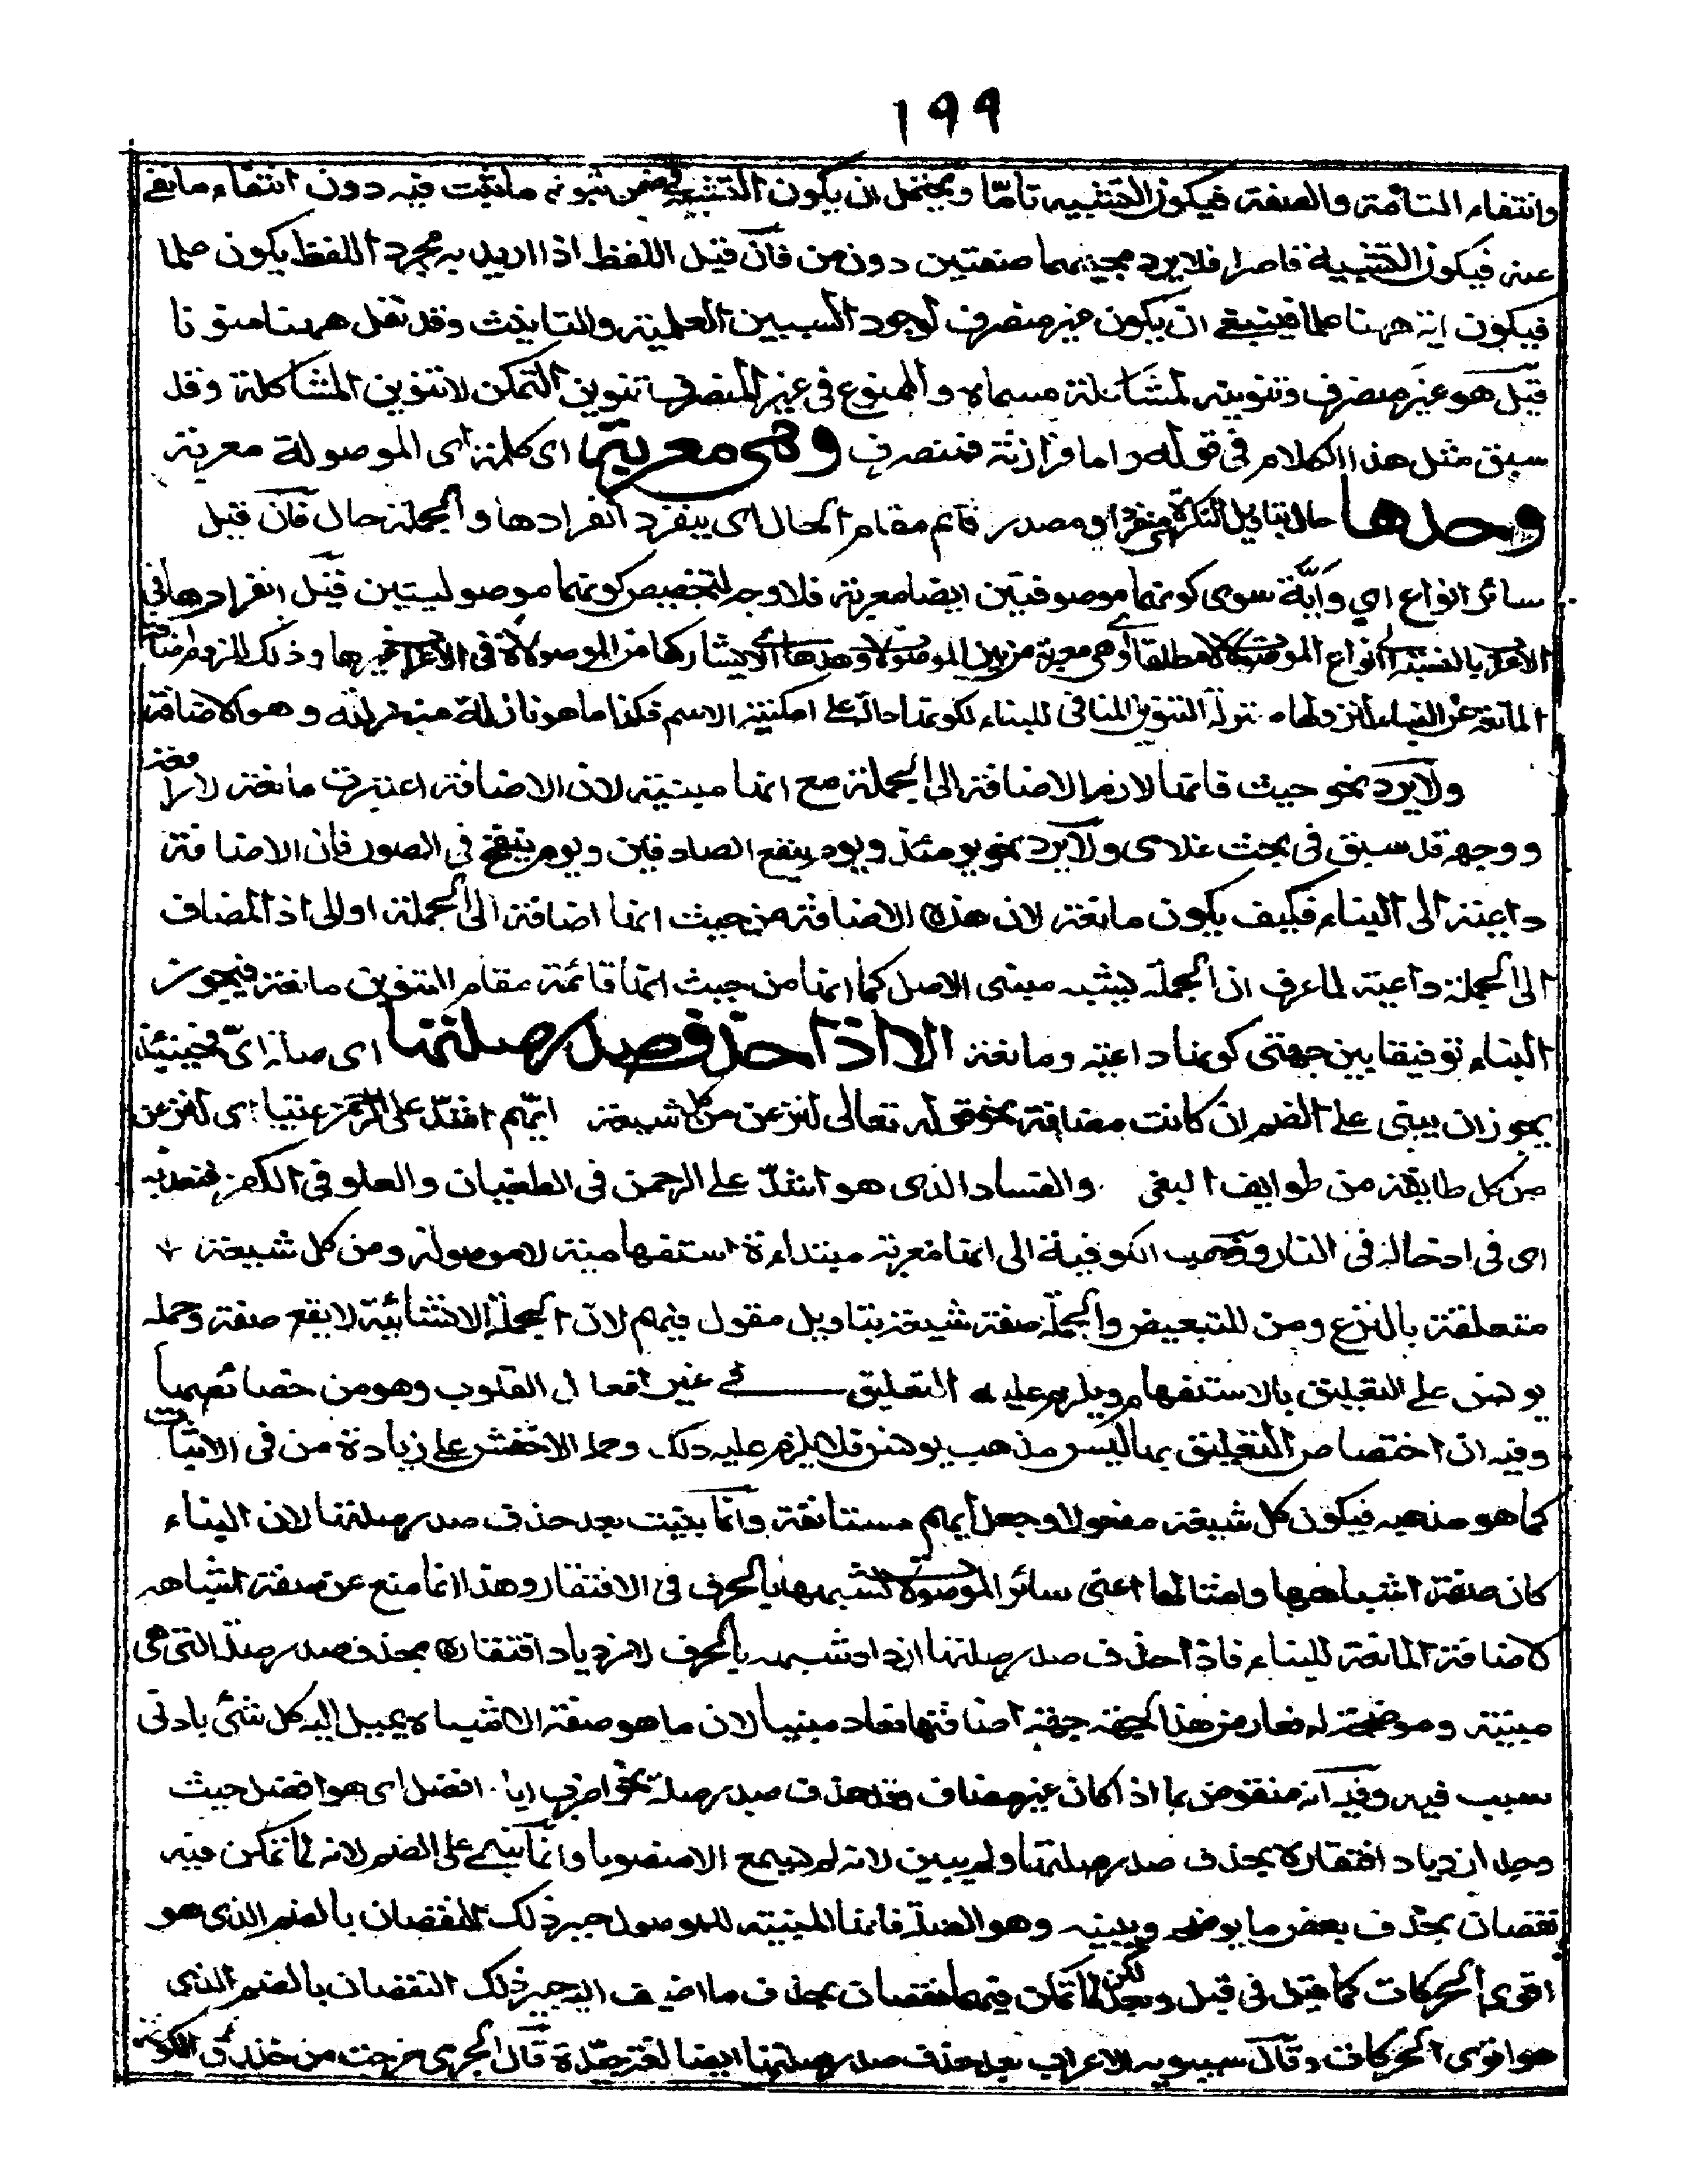 ١٩٩
وانتفاء التامة والصفة فيكون التشبيه تامّا ويحتمل ان يكون التشبيه في ضمن ثبوته ما ثبت فيه دون انتفاء ما نفي
عنه فيكون التشبيه قاصرا فلا يرد مجيئهما صفتين دون من فان قيل اللفظ اذا اريد به مجرد اللفظ يكون علما
فيكون اية ههنا علما فينبغي ان يكون غير منصرف لوجود السببين العلمية والتانيث وقد نقل ههنا منونا
قيل هو غير منصرف وتنوينه لمشاكلة مسماه والممنوع في غير المنصرف تنوين التمكن لا تنوين المشاكلة وقد
سبق مثل هذا الكلام في قوله واما فرازنة فمنصرف وهي معربة اي كلمة اي الموصولة معربة
وحدها حال بتاويل النكرة اي منفردا او مصدر قائم مقام الحال اي ينفرد انفرادها والجملة حال فان قيل
سائر انواع اي وايّة سوى كونهما موصوفتين ايضا معربة فلا وجه لتخصيص كونهما موصوليتين قيل انفرادها في
الاعراب بالنسبة الى انواع الموصولة لا مطلقا اي وهي معربة من بين الموصولات وحدها اي لا يشاركها من الموصولات في الاعراب غيرها وذلك للزوم الاضافة
المانعة عن البناء لنزولها منزلة التنوين المنافي للبناء لكونها دالة على امكنية الاسم فكذا ما هو نازلة منزلته وهو الاضافة
ولا يرد نحو حيث فانها لازم الاضافة الى الجملة مع انها مبنية لان الاضافة اعتبرت مانعة لا رافعة
ووجهه قد سبق في بحث غلامي ولا يرد نحو يومئذ ويوم ينفع الصادقين ويوم ينفخ في الصور فان الاضافة
داعية الى البناء فكيف يكون مانعة لان هذه الاضافة من حيث انها اضافة الى الجملة اولى اذ المضاف
الى الجملة داعية لما عرف ان الجملة يشبه مبني الاصل كما انها من حيث انها قائمة مقام التنوين مانعة فيجوز
البناء توفيقا بين جهتي كونها داعية ومانعة الا اذا حذف صدر صلتها اي صلة ايّ فحينئذ
يجوز ان يبنى على الضم ان كانت مضافة نحو قوله تعالى لننزعن من كل شيعة ايهم اشدّ على الرحمن عتيا اي لننزعن
من كل طايفة من طوايف البغي والفساد الذي هو اشدّ على الرحمن في الطغيان والعلو في الكفر فنعذبه
اي في ادخاله في النار وذهب الكوفية الى انها معربة مبتداءة استفهامية لا موصولة ومن كل شيعة
متعلقة بالنزع ومن للتبعيض والجملة صفة شيعة بتاويل مقول فيهم لان الجملة الانشائية لا يقع صفة وحمله
يونس على التعليق بالاستفهام ويلزم عليه التعليق في غير افعال القلوب وهو من خصائصها
وفيه ان اختصاص التعليق بها ليس مذهب يونس فلا يلزم عليه ذلك وحمل الاخفش على زيادة من في الاثبات
كما هو مذهبه فيكون كل شيعة مفعولا وجعل ايهم مستانفة وانما بنيت بعد حذف صدر صلتها لان البناء
كان صفة اشباهها وامثالها اعني سائر الموصولات لشبهها بالحرف في الافتقار وهذا انما منع عن صفة اشباهه
لاضافة المانعة للبناء فاذا حذف صدر صلتها ازداد شبهه بالحرف لازدياد افتقاره بحذف صدر صلته التي هي
مبينة وموضحة له فعارض هذا الجهة جهة اضافتها فعاد مبنيا لان ما هو صفة الاشباه يميل اليه كل شيء بادنى
سبب فيه وفيه انه منقوض بما اذا كان غير مضاف وقد حذف صدر صلته نحو اضرب ايا افضل اي هو افضل حيث
وجد ازدياد افتقاره بحذف صدر صلتها ولم يبن لانه لم يسمع الا منصوبا وانما بني على الضم لانه لما تمكن فيه
نقصان بحذف بعض ما يوضحه ويبينه وهو الصلة فانها المبينة للموصول جبر ذلك النقصان بالضم الذي هو
اقوى الحركات كما قيل في قبل وبعد لكن لما تمكن فيهما نقصان بحذف ما اضيف اليه جبر ذلك النقصان بالضم الذي
هو اقوى الحركات وقال سيبويه الاعراب بعد حذف صدر صلتها ايضا لغة جيدة قال الجرمي خرجت من خندق الكوفة